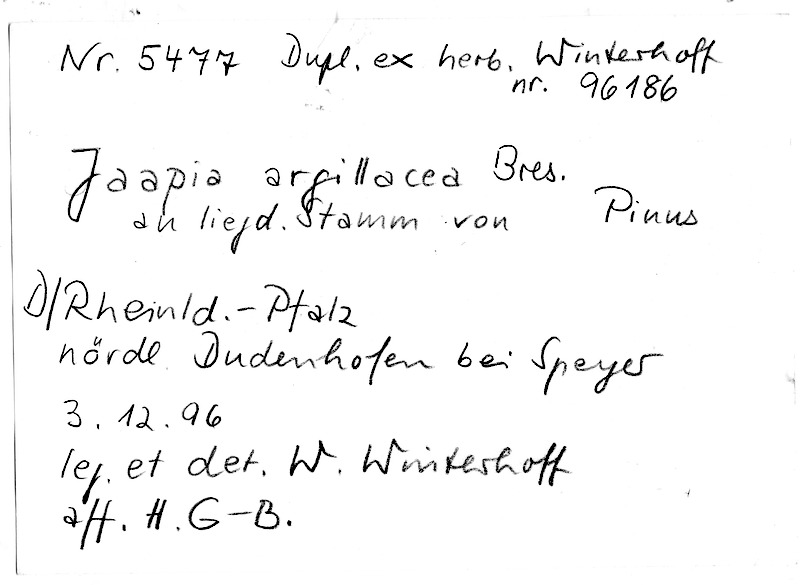 Nr. 5477 Dupl. ex herb. Winterhoff
nr. 96186
Jaapia argillacea Bres.
an liegd. Stamm von Pinus
D/Rheinld.-Pfalz
nördl Dudenhofen bei Speyer
3.12.96
leg. et det. W. Winterhoff
aff. H. G-B.